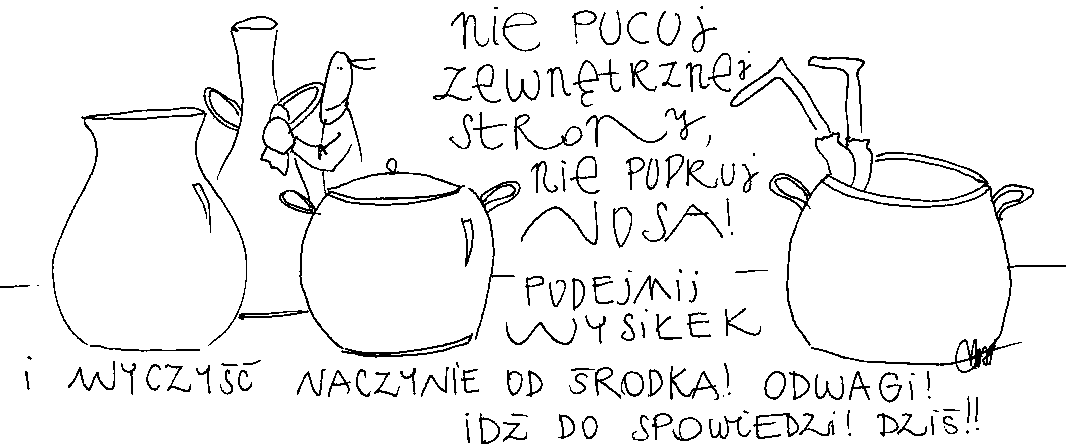 nie PUCUj
zewnętRznej
stRony,
nie PUDRUj
NOSA!
PODEjMij
WYSiŁEK
i WYCZYŚĆ NACZYNIE OD ŚRODKA! ODWAGi!
iDŹ DO SPOWiEDZi! DZiŚ!!